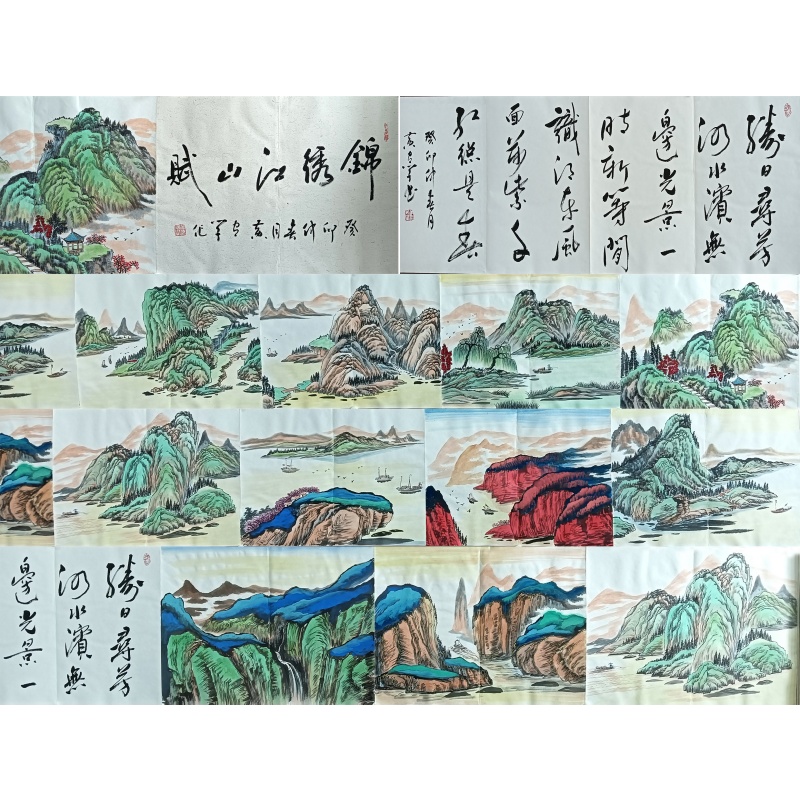 錦綉江山賦
癸卯仲春月
勝日尋芳
泗水濱無
邊光景一
時新等閒
識得東風
面萬紫千
紅總是春
癸卯仲春月
勝日尋芳
泗水濱無
邊光景一